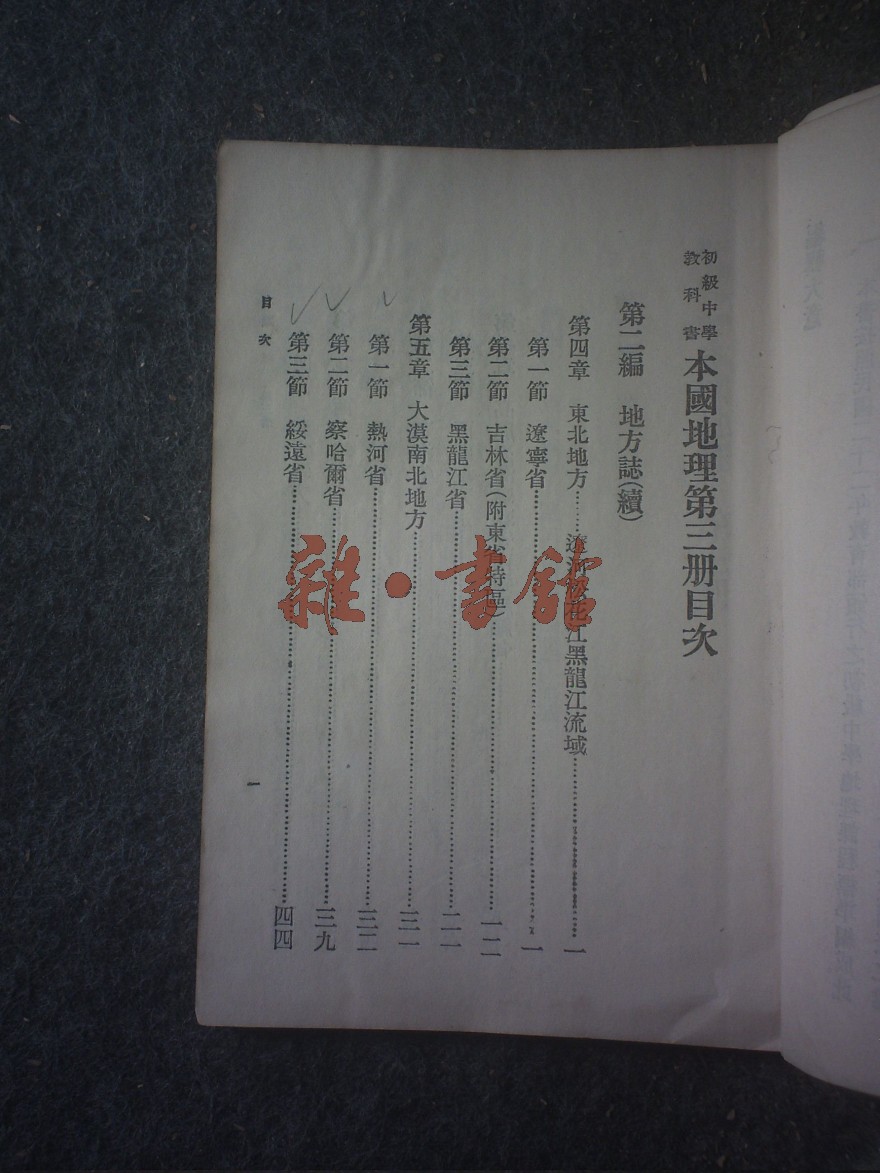 初級中學
教科書
本國地理第三册目次
第二編 地方誌(續)
第四章 東北地方……遼河松花江黑龍江流域……一
第一節 遼寧省……一
第二節 吉林省(附東省特區)……一二
第三節 黑龍江省……二一
第五章 大漠南北地方……三一
第一節 熱河省……三二
第二節 察哈爾省……三九
第三節 綏遠省……四四
目次
一
雜·書館